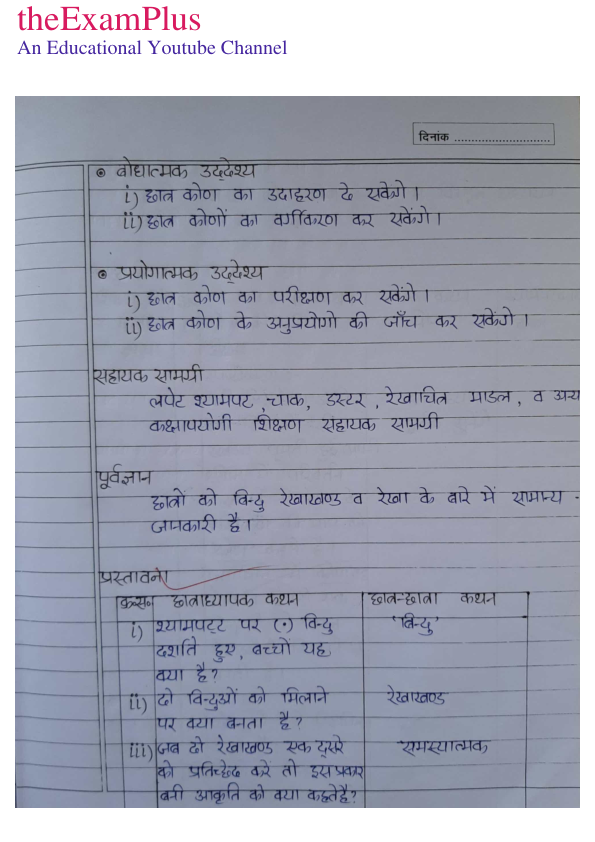 theExamPlus
An Educational Youtube Channel
दिनांक ............................
• बोधात्मक उद्देश्य
i) छात्र कोण का उदाहरण दे सकेंगे।
ii) छात्र कोणों का वर्गीकरण कर सकेंगे।
• प्रयोगात्मक उद्देश्य
i) छात्र कोण का परीक्षण कर सकेंगे।
ii) छात्र कोण के अनुप्रयोगो की जाँच कर सकेंगे।
सहायक सामग्री
लपेट श्यामपट, चाक, डस्टर, रेखाचित्र माडल, व अन्य
कक्षापयोगी शिक्षण संहायक सामग्री
पूर्वज्ञान
छात्रों को बिन्दु रेखाखण्ड व रेखा के बारे में सामान्य -
जानकारी है।
प्रस्तावना
क्र०सं० छात्राध्यापक कथन छात्र-छात्रा कथन
i) श्यामपट्ट पर (•) बिन्दु 'बिन्दु'
दर्शाते हुए, बच्चों यह
क्या है?
ii) दो बिन्दुओं को मिलाने रेखाखण्ड
पर क्या बनता है?
iii) जब दो रेखाखण्ड एक दूसरे समस्यात्मक
को प्रतिच्छेद करे तो इस प्रकार
बनी आकृति को क्या कहते है?